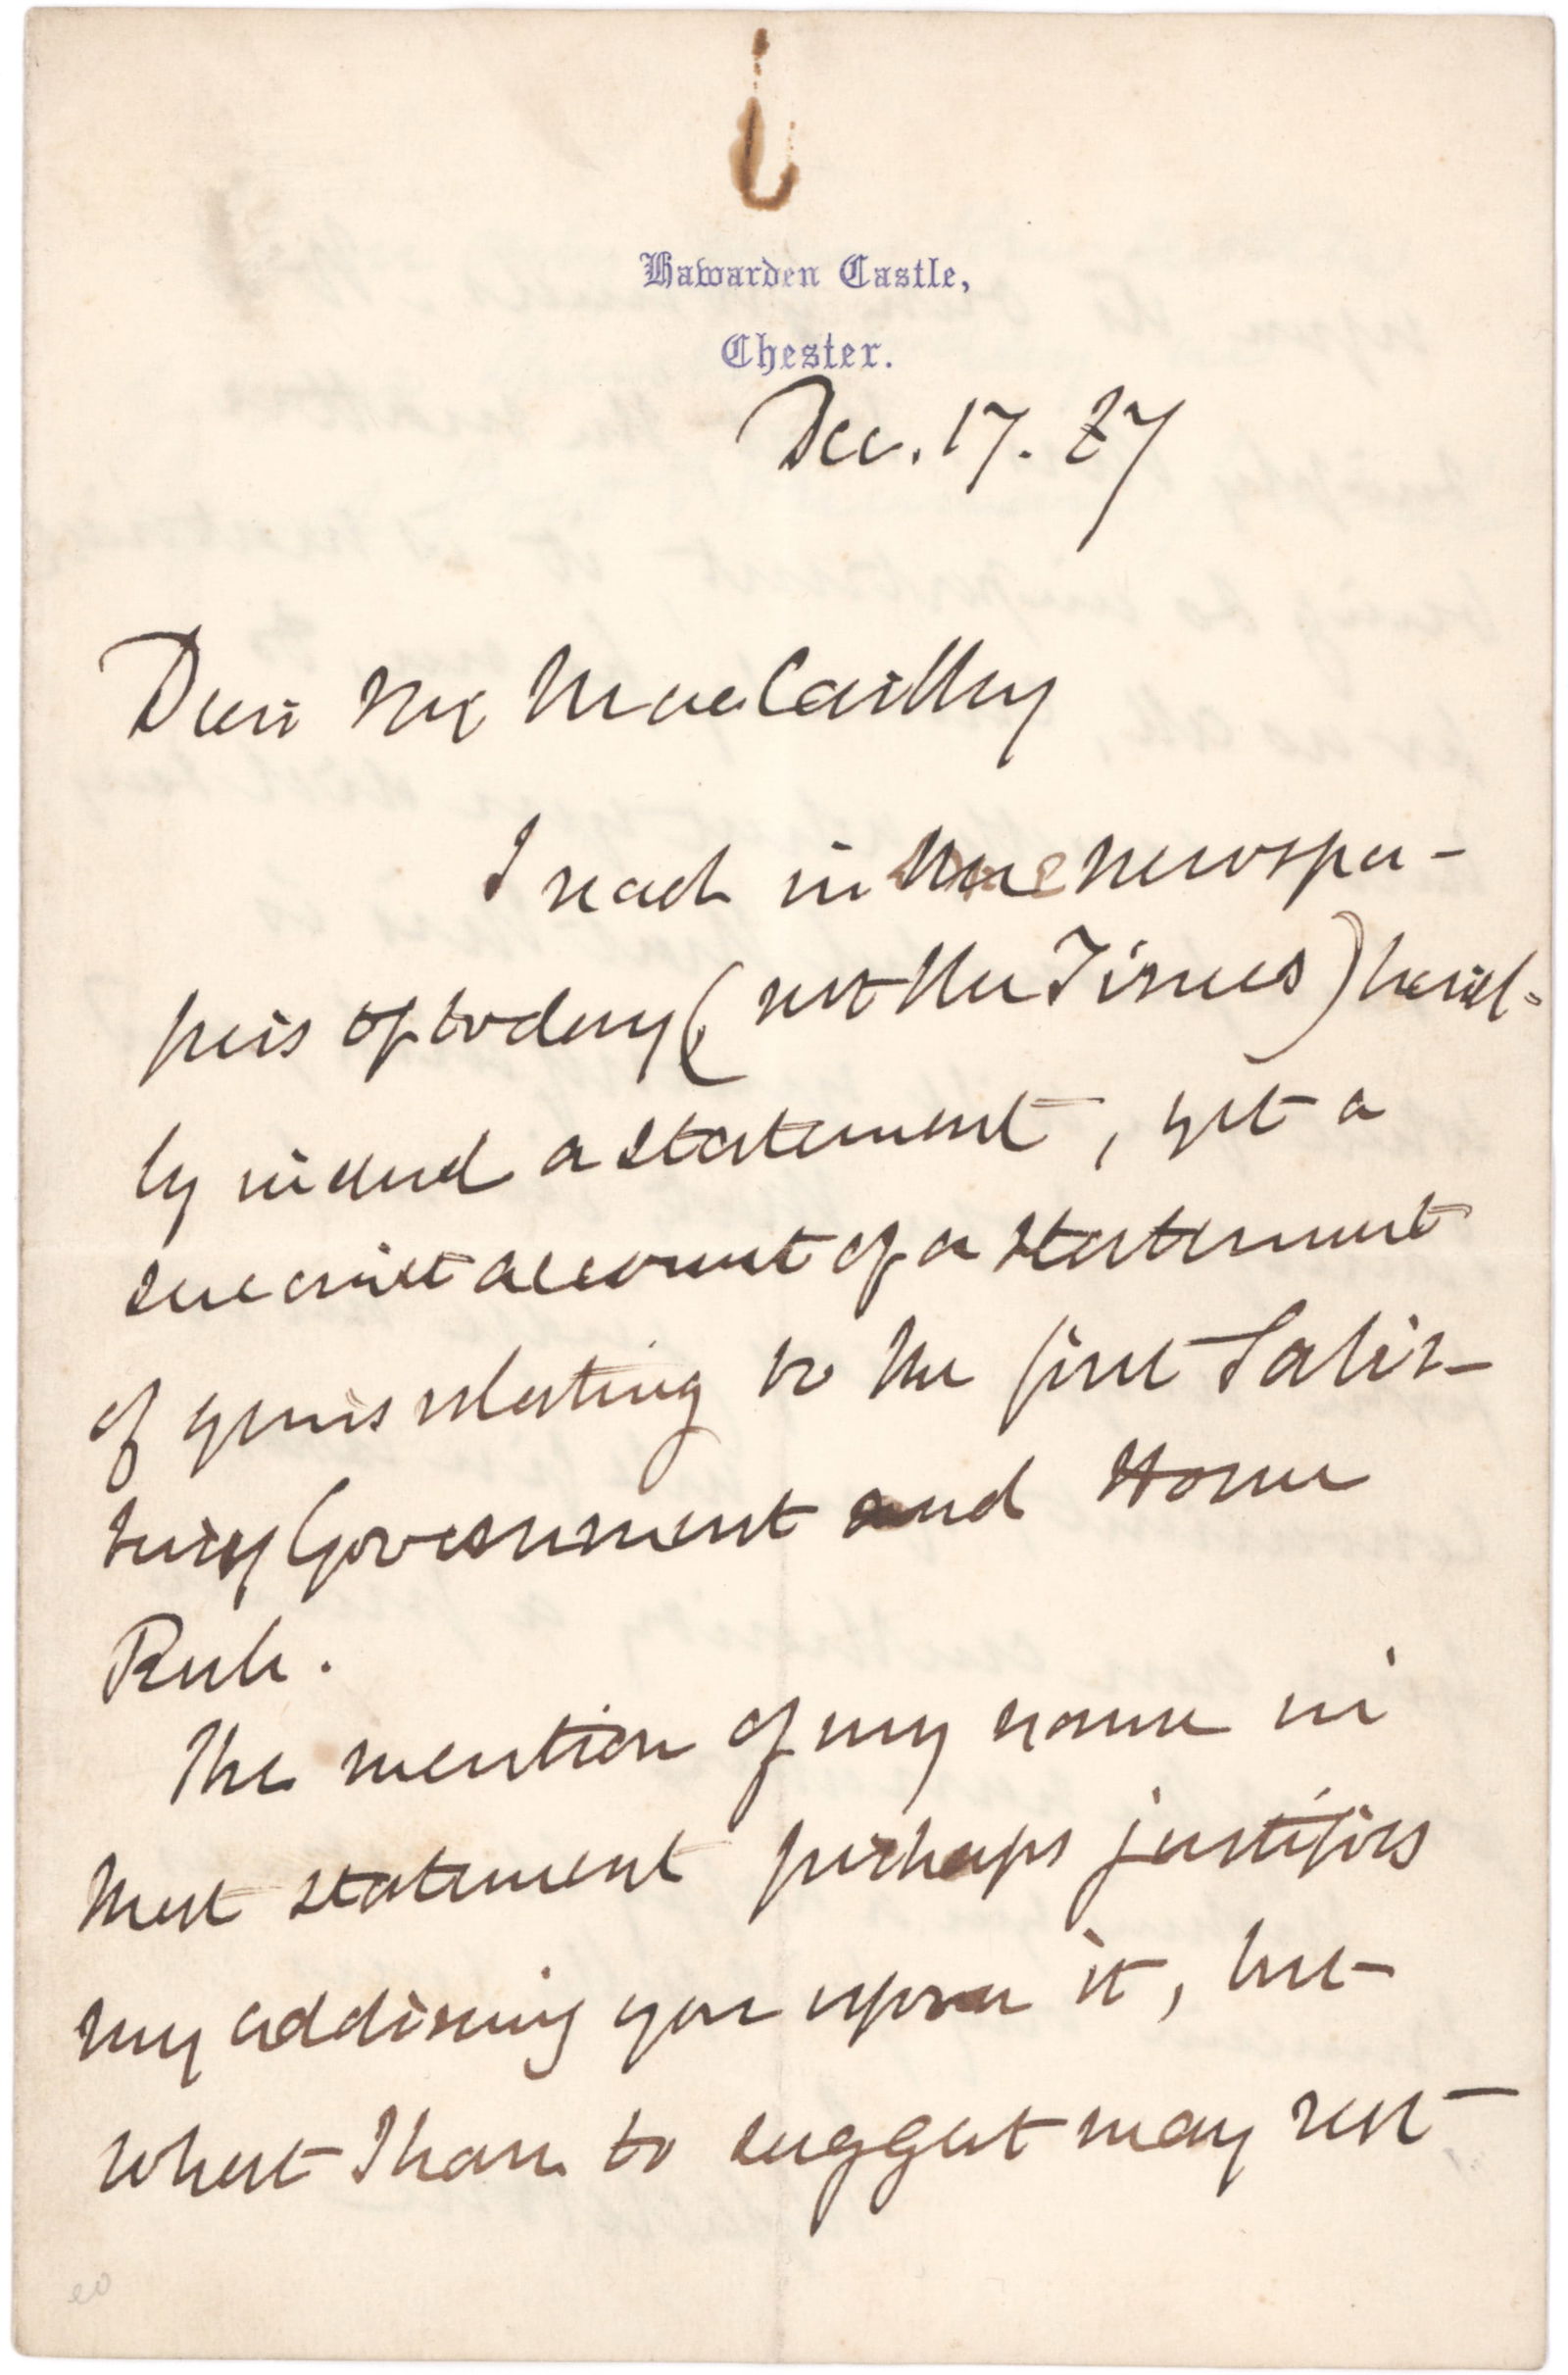 Hawarden Castle,
Chester.
Dec. 17. 87
Dear Mr MacCarthy
I read in the newspa-
pers of today (not the Times) hard-
ly indeed a statement, yet a
succinct account of a statement
of yours relating to the first Salis-
bury Government and Home
Rule.
The mention of my name in
that statement perhaps justifies
my addressing you upon it, but
what I have to suggest may rest